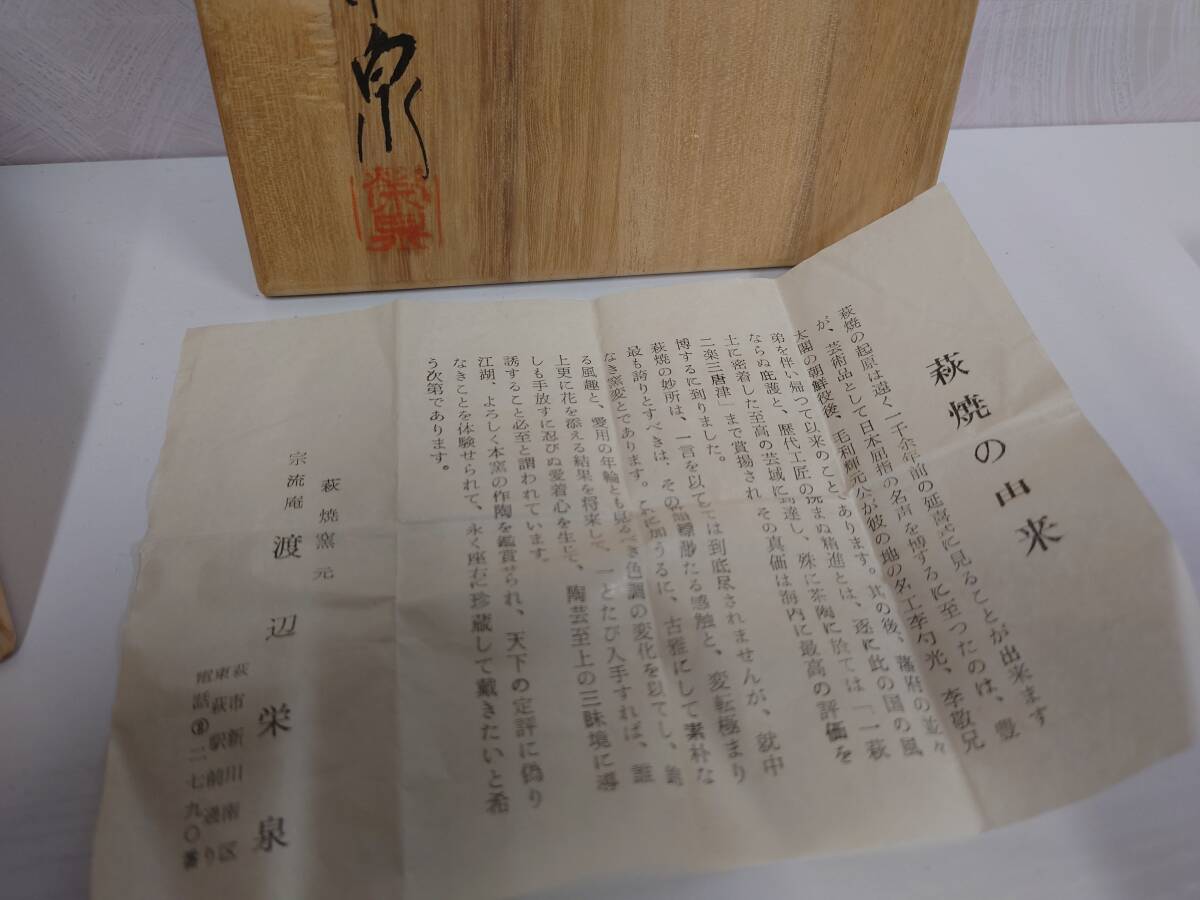 泉
栄泉
萩焼の由来
萩焼の起原は遠く一千余年前の延喜式に見ることが出来ます
が、芸術品として日本屈指の名声を博するに至つたのは、豊
太閤の朝鮮役後、毛利輝元公が彼の地の名工李勺光、李敬兄
弟を伴い帰つて以来のことあります。其の後、藩府の並々
ならぬ庇護と、歴代工匠の撓まぬ精進とは、遂に此の国の風
土に密着した至高の芸域に到達し、殊に茶陶に於ては「一萩
二楽三唐津」まで賞揚され その真価は海内に最高の評価を
博するに到りました。
萩焼の妙所は、一言を以ては到底尽されませんが、就中
最も誇りとすべきは、その たる感触と、変転極まり
なき窯変とであります。 に加うるに、古雅にして素朴な
る風趣と、愛用の年輪とも見るべき色調の変化を以てし、
上更に花を添える結果を将来して、一とたび入手すれば、誰
しも手放すに忍びぬ愛着心を生じ、陶芸至上の三昧境に導
誘すること必至と謂われています。
江湖、よろしく本窯の作陶を鑑賞せられ、天下の定評に偽り
なきことを体験せられて、永く座右に珍蔵して戴きたいと希
う次第であります。
萩焼窯元
宗流庵 渡辺栄泉
萩市新川南区
東萩駅前通り
電話②二七九〇番